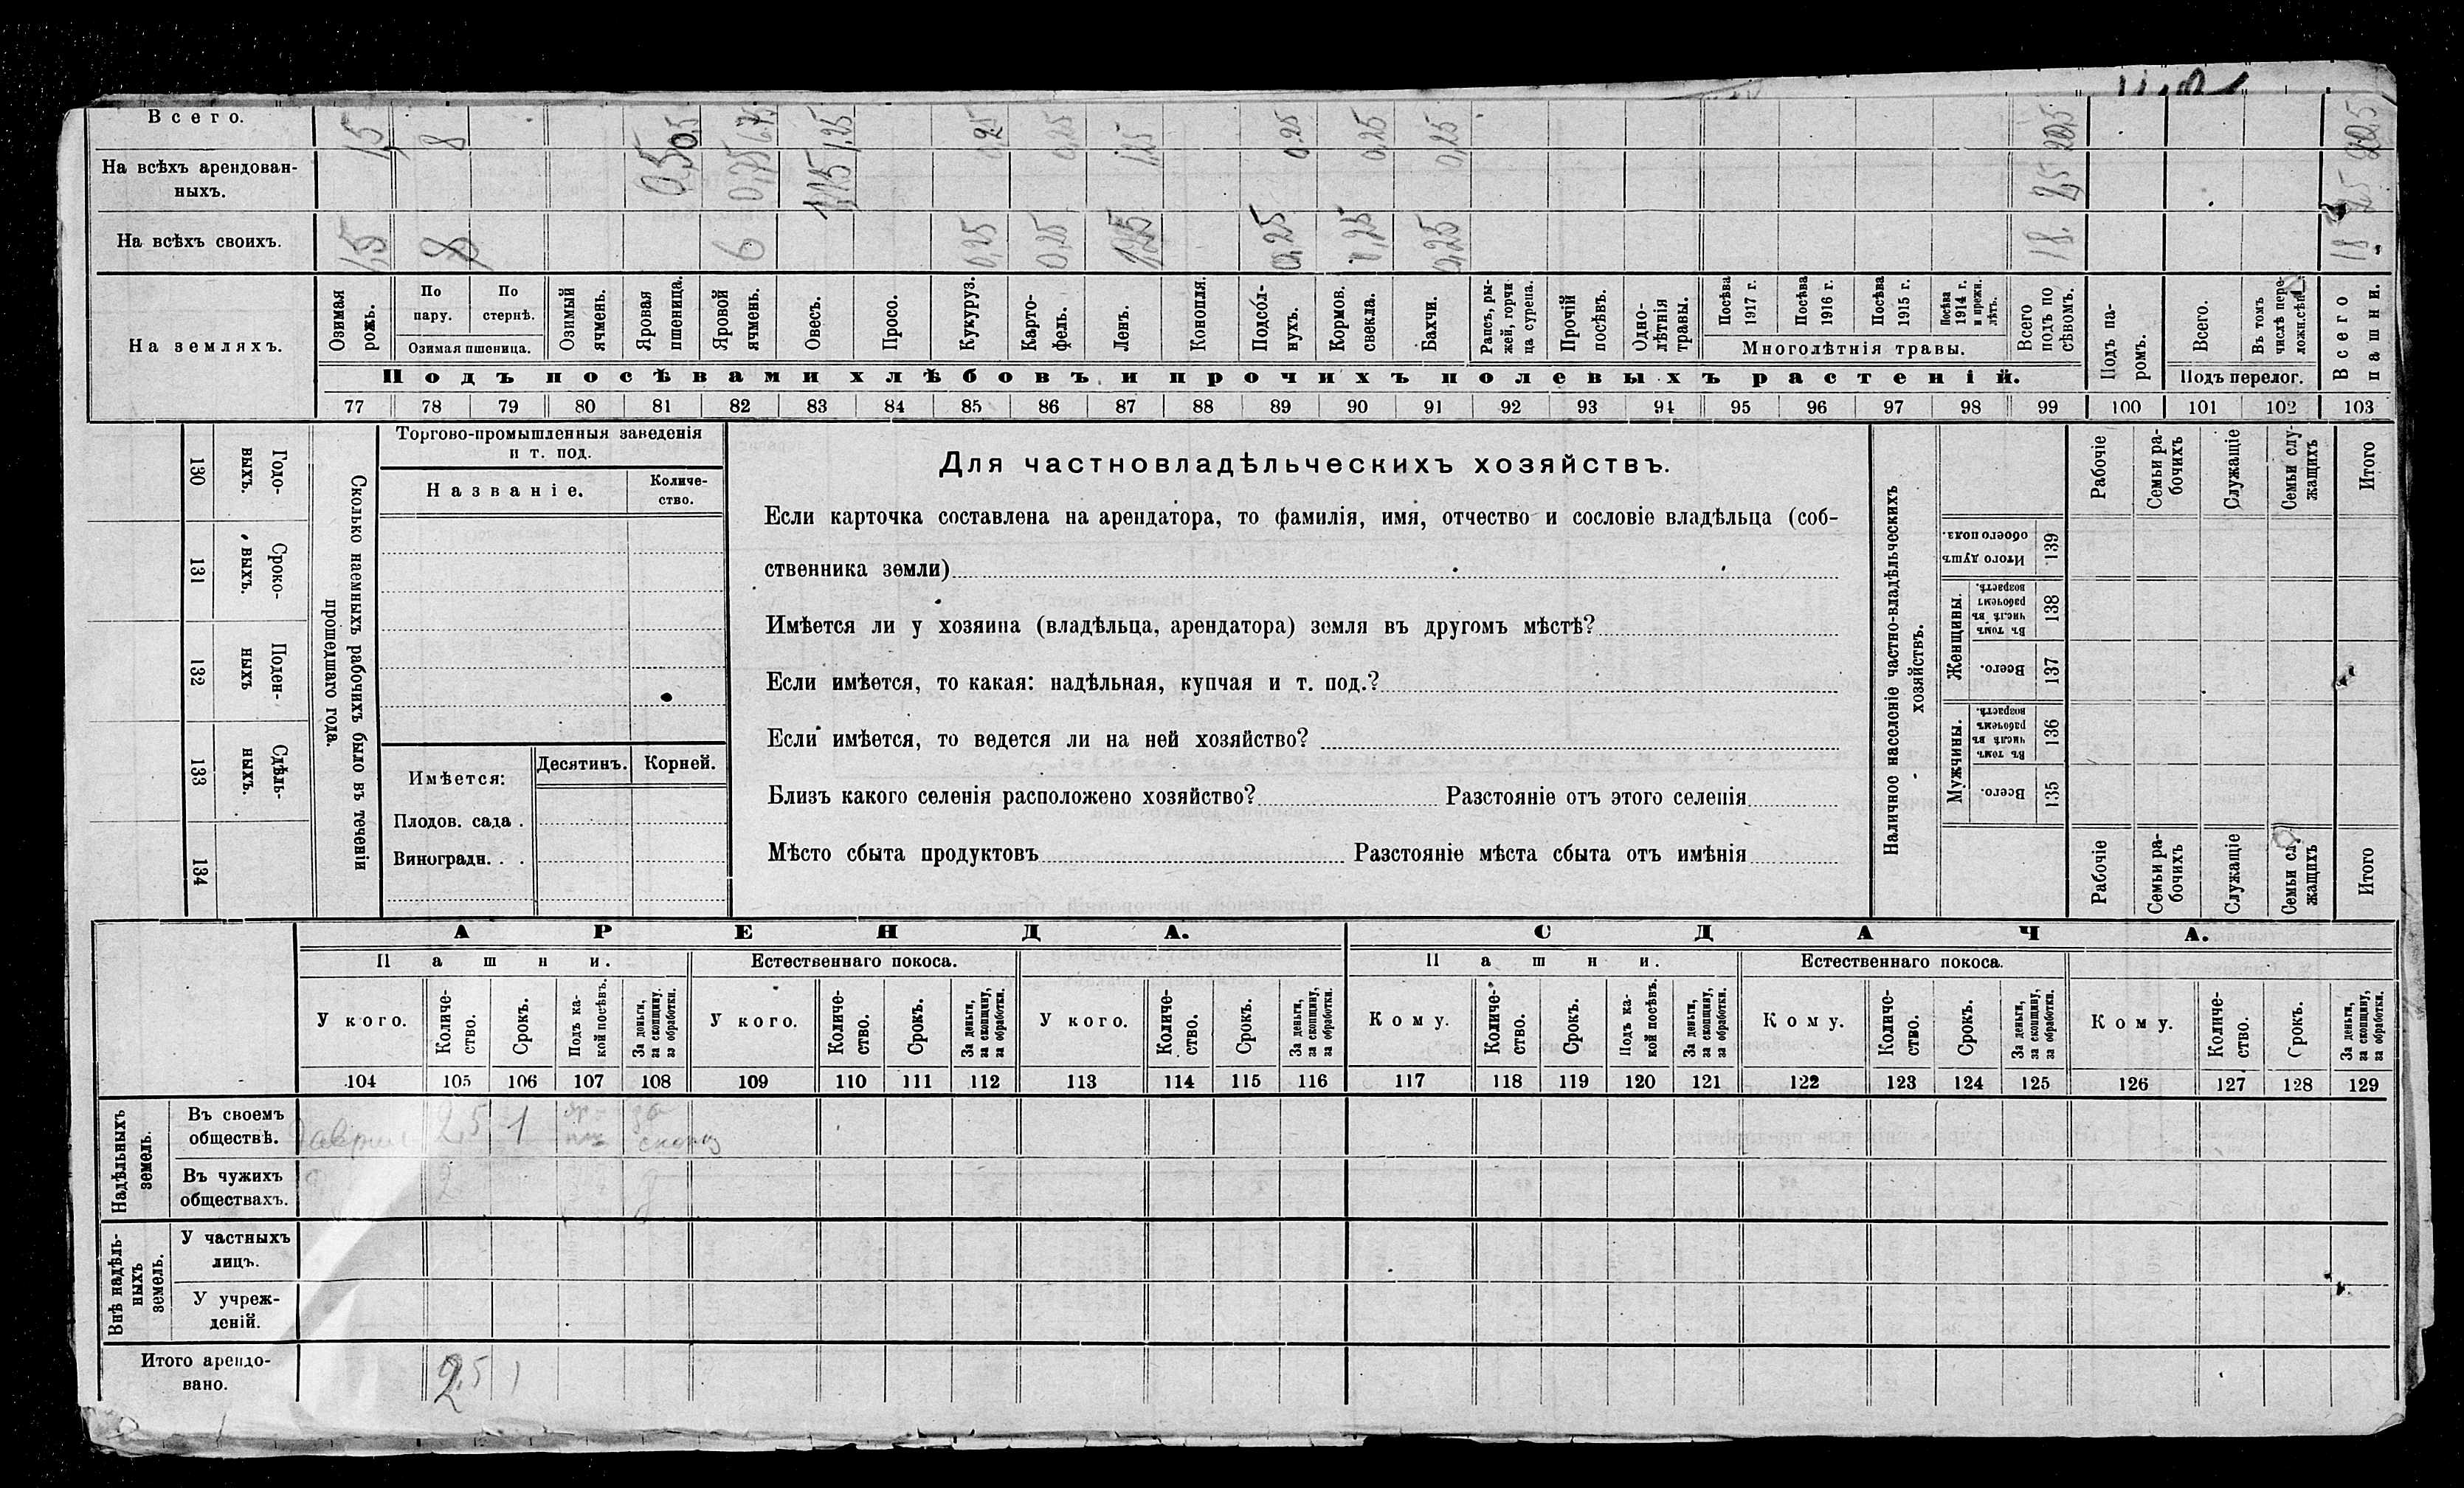 Всего. 1,5 8 0,5 6,75 1,25 0,25 0,25 1,25 0,25 0,25 0,25 20,5 20,5
На всѣхъ арендован-
ныхъ. 0,5 0,75 2,5 2,5
На всѣхъ своихъ. 1,5 8 6 0,25 0,25 1,25 0,25 0,25 0,25 18 18
На земляхъ.
Озимая рожь.
По пару.
По стернѣ.
Озимая пшеница.
Озимый ячмень.
Яровая пшеница.
Яровой ячмень.
Овесъ.
Просо.
Кукуруз.
Карто-
фель.
Ленъ.
Конопля.
Подсол-
нухъ.
Кормов. свекла.
Бахчи.
Рапсъ, ры-
жей, горчи-
ца сурепа.
Прочій посѣвъ.
Одно-
лѣтнія травы.
Посѣва 1917 г.
Посѣва 1916 г.
Посѣва 1915 г.
Посѣва 1914 г. и прежн. лѣтъ.
Многолѣтнія травы.
Всего подъ по
сѣвомъ.
Подъ па-
ромъ.
Всего.
Въ томъ числѣ пере-
ложн.сѣн
Подъ перелог.
Всего пашни.
Подъ посѣвами хлѣбовъ и прочихъ полевыхъ растеній.
77 78 79 80 81 82 83 84 85 86 87 88 89 90 91 92 93 94 95 96 97 98 99 100 101 102 103
130 Годо-
выхъ.
131 Сроко-
выхъ.
132 Поден-
ныхъ
133 Сдѣль-
ныхъ.
134
Сколько наемныхъ рабочихъ было въ теченіи
прошедшаго года.
Торгово-промышленныя заведенія
и т. под.
Названіе.
Количе-
ство.
Имѣется:
Десятинъ. Корней.
Плодов. сада .
Виноградн. . .
Для частновладѣльческихъ хозяйствъ.
Если карточка составлена на арендатора, то фамилія, имя, отчество и сословіе владѣльца (соб-
ственника земли)
Имѣется ли у хозяина (владѣльца, арендатора) земля въ другомъ мѣстѣ?
Если имѣется, то какая: надѣльная, купчая и т. под.?
Если имѣется, то ведется ли на ней хозяйство?
Близъ какого селенія расположено хозяйство? Разстояніе отъ этого селенія
Мѣсто сбыта продуктовъ Разстояніе мѣста сбыта отъ имѣнія
Наличное населеніе частно-владѣльческихъ
хозяйствъ.
Рабочіе
Семьи ра-
бочихъ
Служащіе
Семьи слу-
жащихъ
Итого
Итого душъ обоего пола. 139
Женщины.
Въ томъ числѣ въ рабочемъ возрастѣ. 138
Всего. 137
Мужчины.
Въ томъ числѣ въ рабочемъ возрастѣ. 136
Всего. 135
Рабочіе
Семьи ра-
бочихъ
Служащіе
Семьи сл
жащихъ
Итого
АРЕНДА. СДАЧА.
Пашни. Естественнаго покоса. Пашни. Естественнаго покоса.
У кого.
Количе-
ство.
Срокъ.
Подъ ка-
кой посѣвъ.
За деньги, за скопщину, за обработки.
У кого.
Количе-
ство.
Срокъ.
За деньги, за скопщину, за обработки.
У кого.
Количе-
ство.
Срокъ.
За деньги, за скопщину, за обработки.
Кому.
Количе-
ство.
Срокъ.
Подъ ка-
кой посѣвъ.
За деньги, за скопщину, за обработки.
Кому.
Количе-
ство.
Срокъ.
За деньги, за скопщину, за обработки.
Кому.
Количе-
ство.
Срокъ.
За деньги, за скопщину, за обработки.
104 105 106 107 108 109 110 111 112 113 114 115 116 117 118 119 120 121 122 123 124 125 126 127 128 129
Надѣльныхъ земель.
Въ своемъ
обществѣ. 2,5 1 за
Въ чужихъ
обществахъ. 2
Внѣ надѣль-
ныхъ земель.
У частныхъ
лицъ.
У учреж-
деній.
Итого арендо-
вано. 2,5